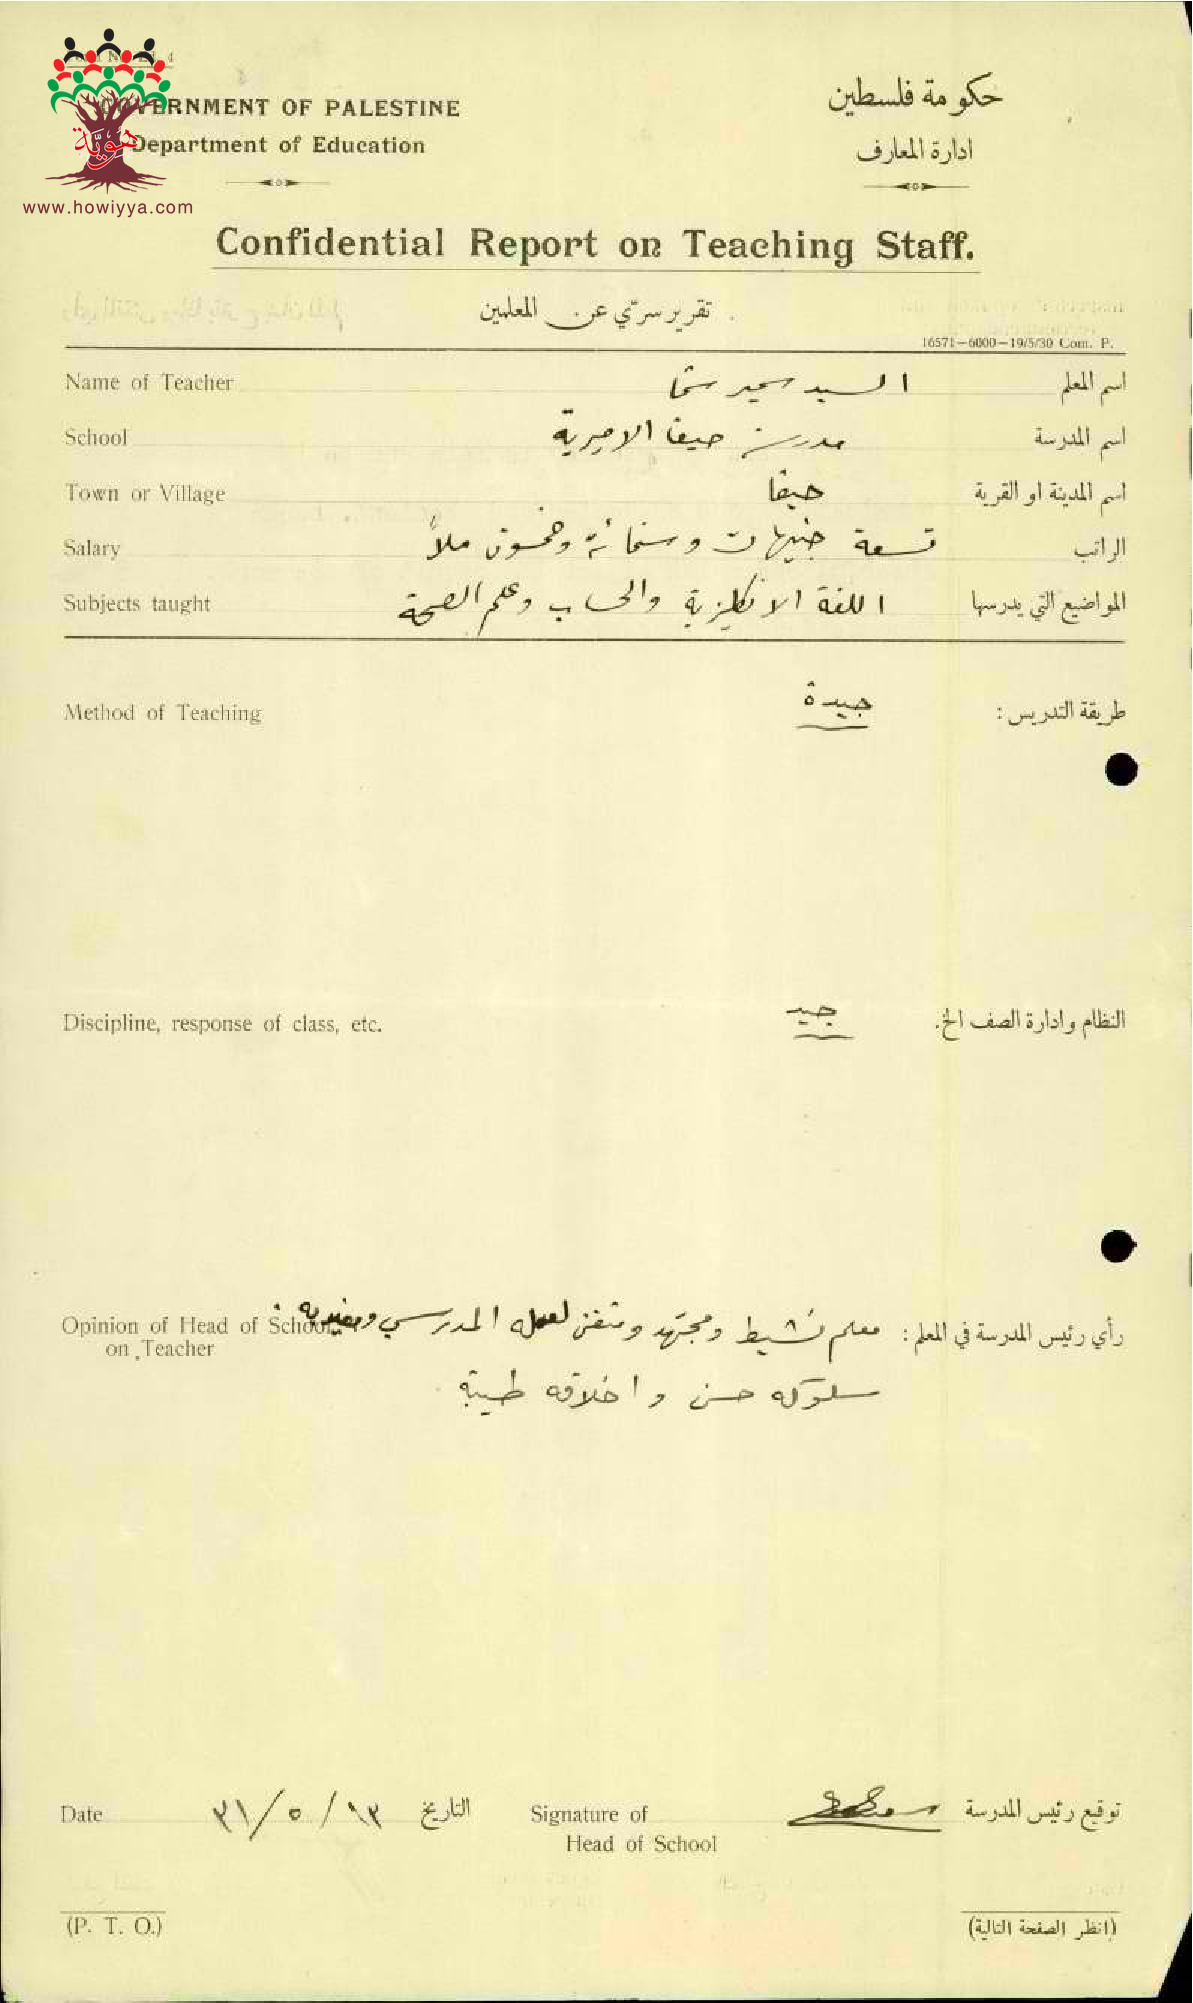 GOVERNMENT OF PALESTINE
Department of Education
حكومة فلسطين
ادارة المعارف
هوية
www.howiyya.com
Confidential Report on Teaching Staff.
تقرير سري عن المعلمين
16571—6000—19/5/30 Com. P.
Name of Teacher السيد سمير شما اسم المعلم
School مدرسة حيفا الاميرية اسم المدرسة
Town or Village حيفا اسم المدينة او القرية
Salary تسعة جنيهات وستمائة وخمسون ملاً الراتب
Subjects taught اللغة الانكليزية والحساب وعلم الصحة المواضيع التي يدرسها
Method of Teaching جيدة طريقة التدريس :
Discipline, response of class, etc. جيد النظام وادارة الصف الخ.
Opinion of Head of School رأي رئيس المدرسة في المعلم : معلم نشيط ومجتهد ومتقن لعمله المدرسي
on Teacher
سلوكه حسن واخلاقه طيبة
Date ١٣/٥/٣١ التاريخ Signature of توقيع رئيس المدرسة
Head of School
(P. T. O.) (انظر الصفحة التالية)